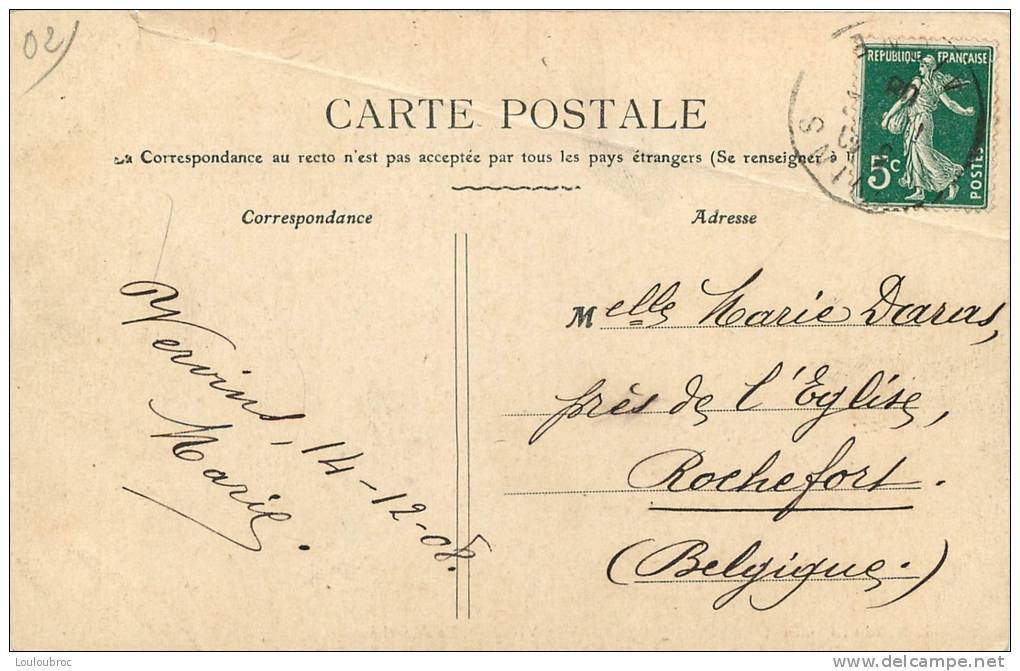 02)
RÉPUBLIQUE FRANÇAISE
5c
POSTES
CARTE POSTALE
La Correspondance au recto n'est pas acceptée par tous les pays étrangers (Se renseigner
Correspondance
Adresse
Vervins, 14-12-08.
Marie.
Melle Marie Daras,
près de l'Eglise,
Rochefort.
(Belgique.)
Louloubroc
www.delcampe.net